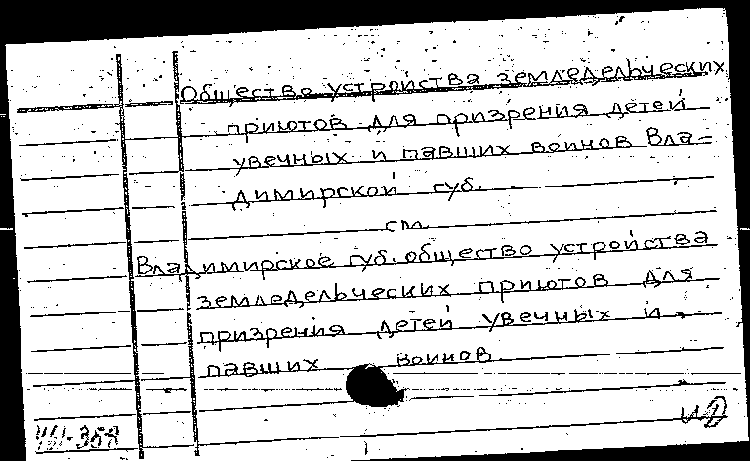 Общество устройства земледельческих
приютов для призрения детей
увечных и павших воинов Вла-
димирской губ.
см.
Владимирское губ. общество устройства
земледельческих приютов для
призрения детей увечных и
павших воинов